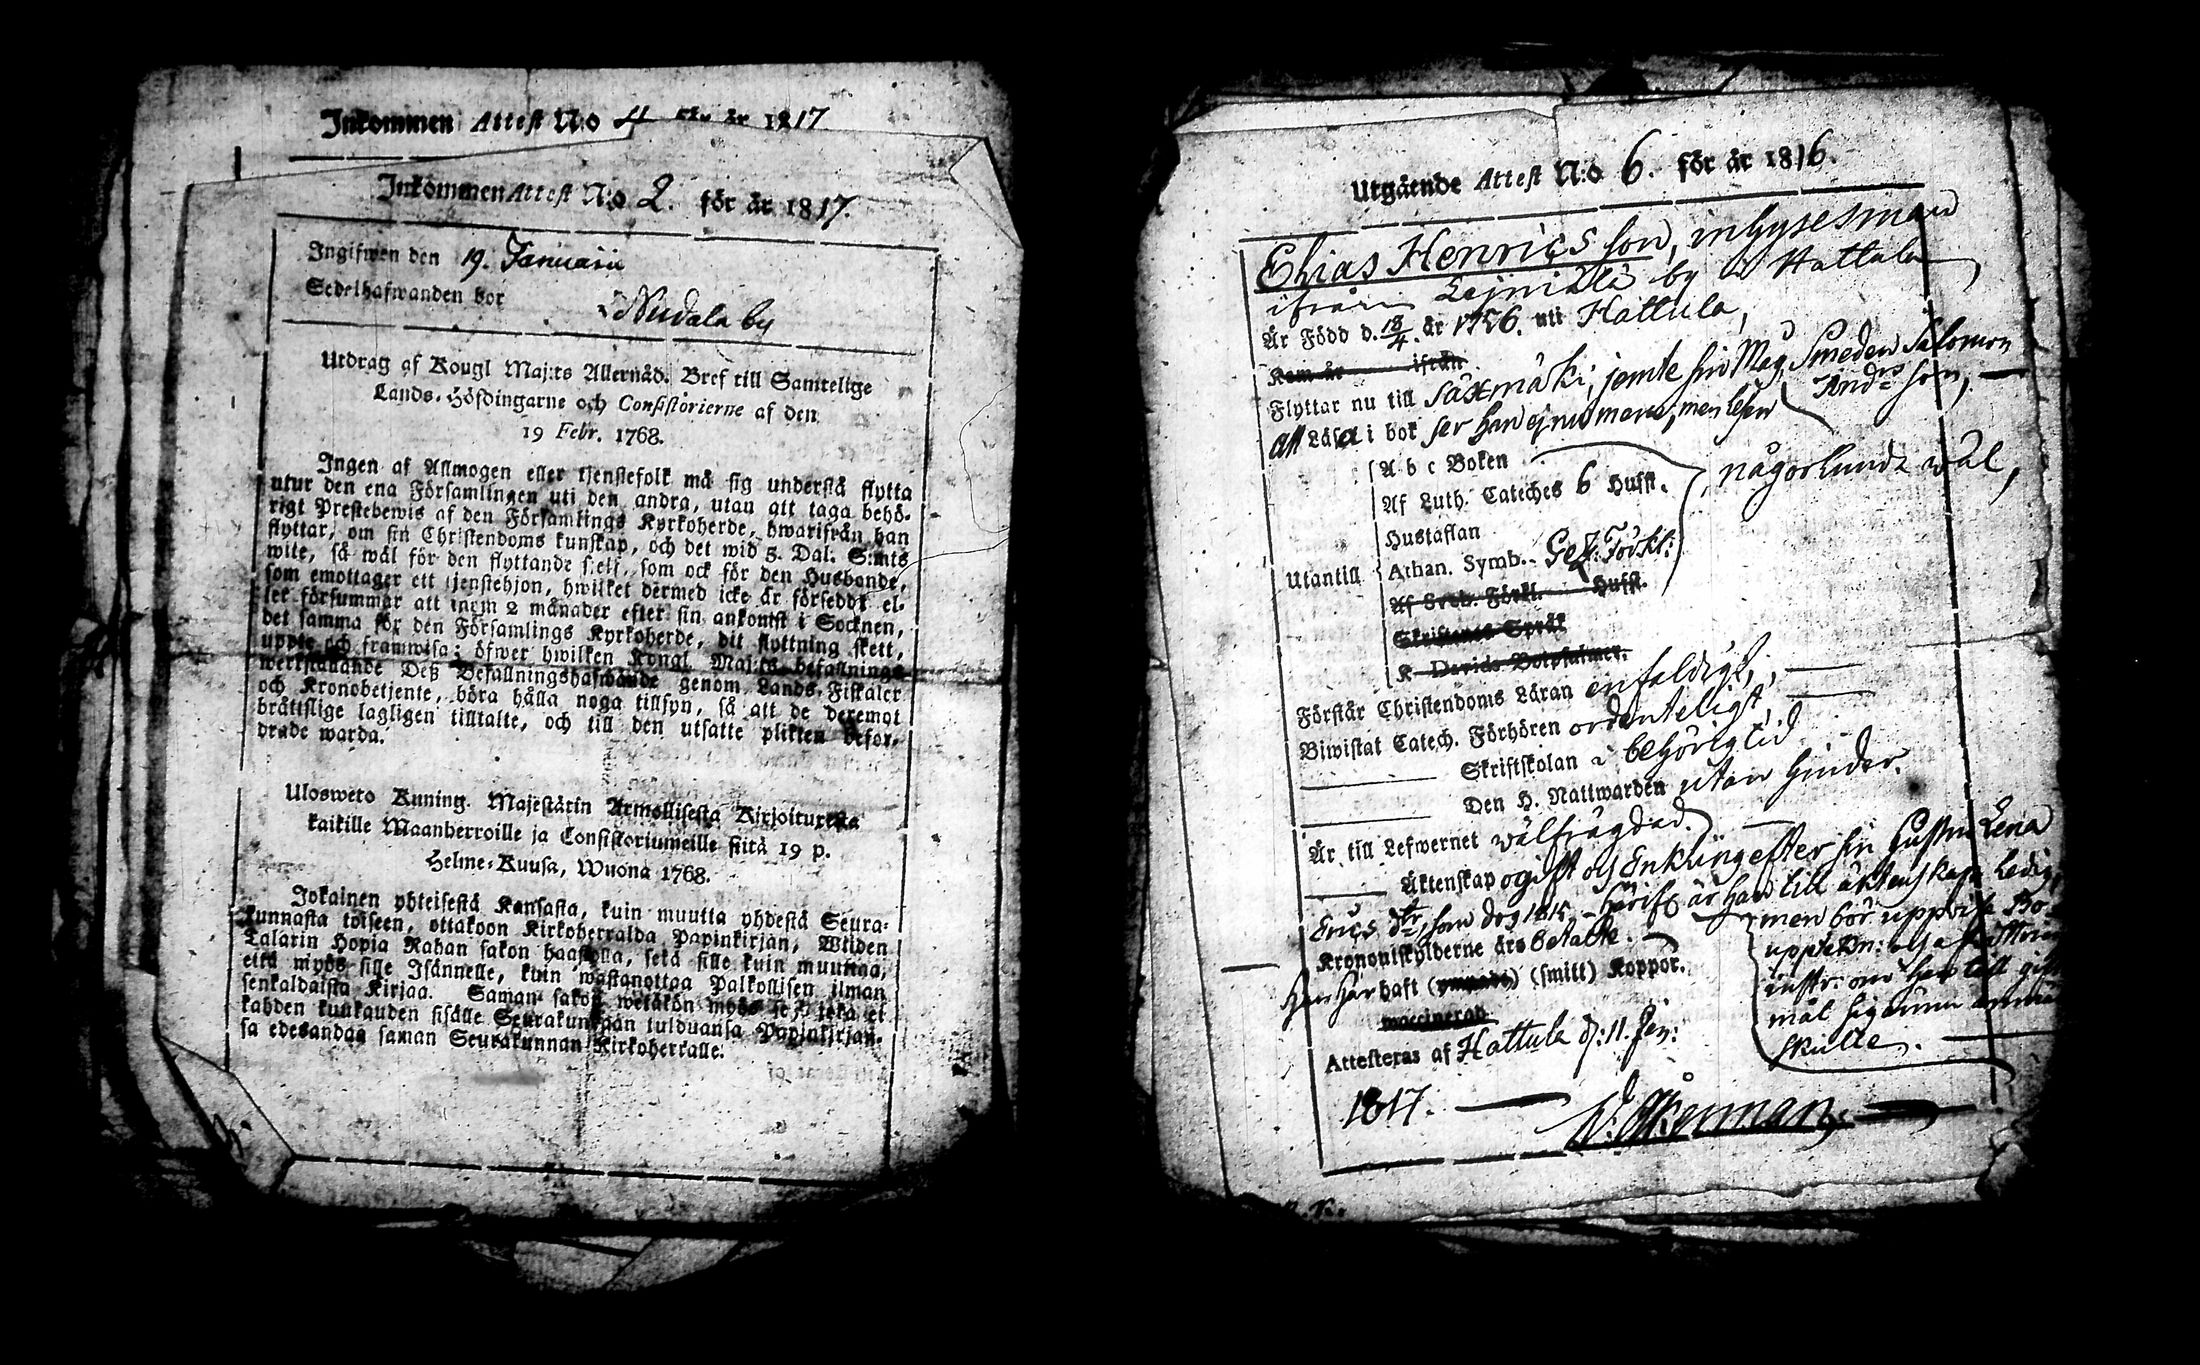 Inkommen Attest N:o 4 för år 1817
Inkommen Attest N:o 2. för år 1817.
Ingifwen den 19. Januarii
Sedelhafwanden bor
Nudala by
Utdrag af Kongl Maj:ts Allernåd. Bref till Samtelige
Lands-Höfdingarne och Consistorierne af den
19 Febr. 1768.
Ingen af Allmogen eller tjenstefolk må sig understå flytta
utur den ena Församlingen uti den andra, utan att taga behö-
rigt Prestebewis af den Församlings Kyrkoherde, hwarifrån han
flyttar, om sin Christendoms kunskap, och det wid 5. Dal: S:mts
wite, så wäl för den flyttande sjelf, som ock för den Husbonde,
som emottager ett tjenstehjon, hwilket dermed icke är försedd: el-
ler försummar att inom 2 månader efter sin ankomst i Socknen,
det samma för den Församlings Kyrkoherde, dit flyttning skett,
uppte och framwisa; öfwer hwilken Kongl Maj:ts befallnings
werkställande Deß Befallningshafwande genom Lands-Fiskaler
och Kronobetjente, böra hålla noga tillsyn, så att de deremot
bråttslige lagligen tilltalte, och till den utsatte plikten befor-
drade warda.
Ulosweto Kuning. Majestätin Armollisesta Kirjoituresta
kaikille Maanherroille ja Consistoriumeille siitä 19 p.
Helme-Kuusa, Wuonna 1768.
Jokainen yhteisestä Kansasta, kuin muutta yhdestä Seura-
kunnasta toiseen, ottakoon Kirkoherralda Papinkirjan, Wiiden
Talarin Hopia Rahan sakon haastolla, sekä sille kuin muuttaa,
että myös sille Isännelle, kuin wastanottaa Palkollisen ilman
senkaldaista Kirjaa. Saman sakon wetäkön myös se joka ei
kahden kuukauden sisälle Seurakuntaan tulduansa Papinkirjan-
sa edesandaa saman Seurakunnan Kirkoherralle.
Utgående Attest N:o 6. för år 1816.
Elias Henrics son, inhysesman
ifrån Lejniälä by i Hattula
Är Född d. 18/4. år 1756. uti Hattula,
Kom år ifrån
Flyttar nu till Säxmäki, jemte sin Måg Smeden Salomon
Andrs son,
att Läsa i bok ser han ej numera, men läser
A b c Boken
någorlunda wäl,
Af Luth. Cateches 6 Hufst.
Hustaflan
Utantill
Athan. Symb. Gez. Förkl:
Af Sveb. Förkl. Hufst.
Skriftenes Språk
K Davids Botpsalmer.
Förstår Christendoms Läran enfaldigt,
Biwistat Catech. Förhören ordenteligt,
Skriftskolan i behörig tid
Den H. Nattwarden utan hinder.
Är till Lefwernet wälfrägdad.
Äktenskap ogift och Enkling efter sin hustru Lena
Erics dtr, som dog 1815, härifr. är han till äktenskap ledig,
men bör uppvisa
Kronoutskylderne äro betalte.
Han har haft (ympade) (smitt) Koppor.
om han till gifte
vaccinerad
mål sig anmäla
skulle.
Attesteras af Hattula d: 11. Jan:
1817.
N: Åkerman.